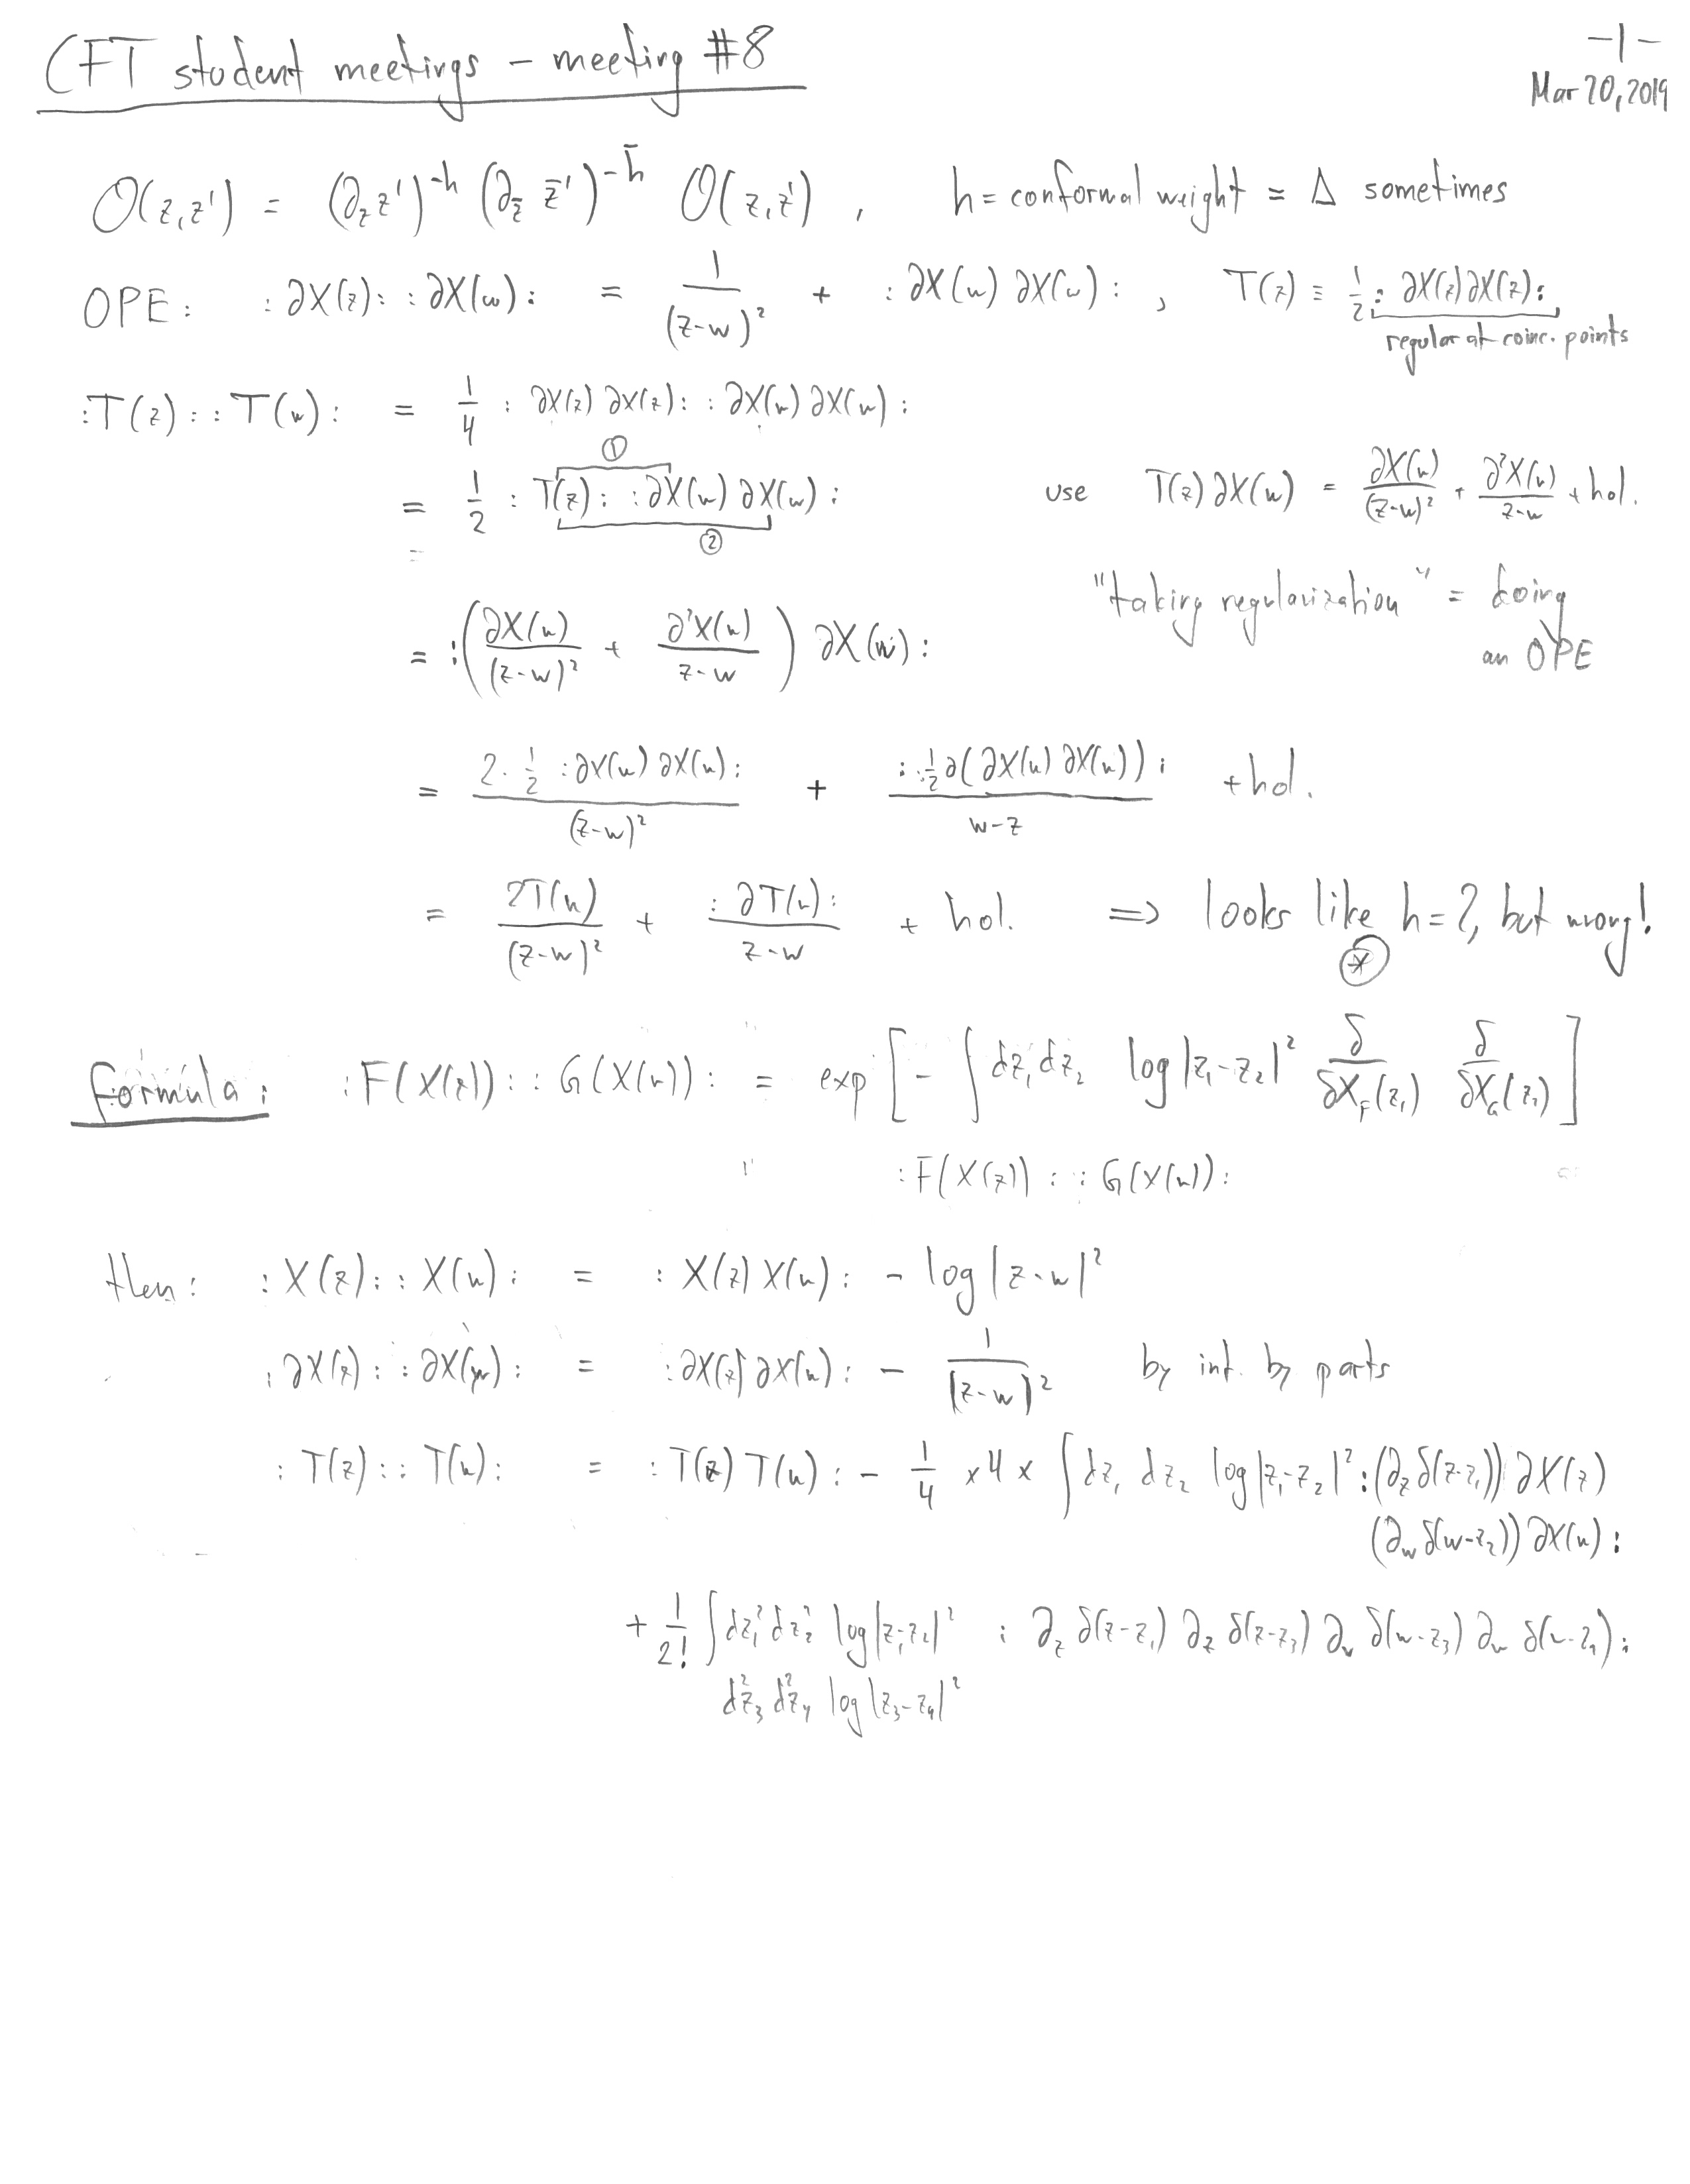 CFT student meetings – meeting #8
-1-
Mar 20, 2019
O(z,z') = (∂_z z')^{-h} (∂_{z̄} z̄')^{-h̄} O(z,z'), h = conformal weight = Δ sometimes
OPE: :∂X(z): :∂X(w): = 1/(z-w)² + :∂X(w) ∂X(w):, T(z) ≡ 1/2 :∂X(z)∂X(z):
regular at coinc. points
:T(z): :T(w): = 1/4 :∂X(z) ∂X(z): :∂X(w) ∂X(w):
①
= 1/2 :T(z): :∂X(w) ∂X(w): use T(z) ∂X(w) = ∂X(w)/(z-w)² + ∂²X(w)/(z-w) + hol.
②
=
"taking regularization" = doing
an OPE
= :(∂X(w)/(z-w)² + ∂²X(w)/(z-w)) ∂X(w):
= 2·1/2 :∂X(w) ∂X(w):/(z-w)² + :1/2 ∂(∂X(w) ∂X(w)):/(w-z) + hol.
= 2T(w)/(z-w)² + :∂T(w):/(z-w) + hol. => looks like h=2, but wrong!
⊛
formula: :F(X(z)): :G(X(w)): = exp[-∫dz₁dz₂ log|z₁-z₂|² δ/δX_F(z₁) δ/δX_G(z₂)]
:F(X(z)): :G(X(w)):
then: :X(z): :X(w): = :X(z) X(w): - log|z-w|²
:∂X(z): :∂X(w): = :∂X(z) ∂X(w): - 1/(z-w)² by int. by parts
:T(z): :T(w): = :T(z) T(w): - 1/4 ×4× ∫dz₁ dz₂ log|z₁-z₂|² :(∂_z δ(z-z₁)) ∂X(z)
(∂_w δ(w-z₂)) ∂X(w):
+ 1/2! ∫dz₁² dz₂² log|z₁-z₂|² :∂_z δ(z-z₁) ∂_z δ(z-z₃) ∂_w δ(w-z₃) ∂_w δ(w-z₄):
d²z₃ d²z₄ log|z₃-z₄|²